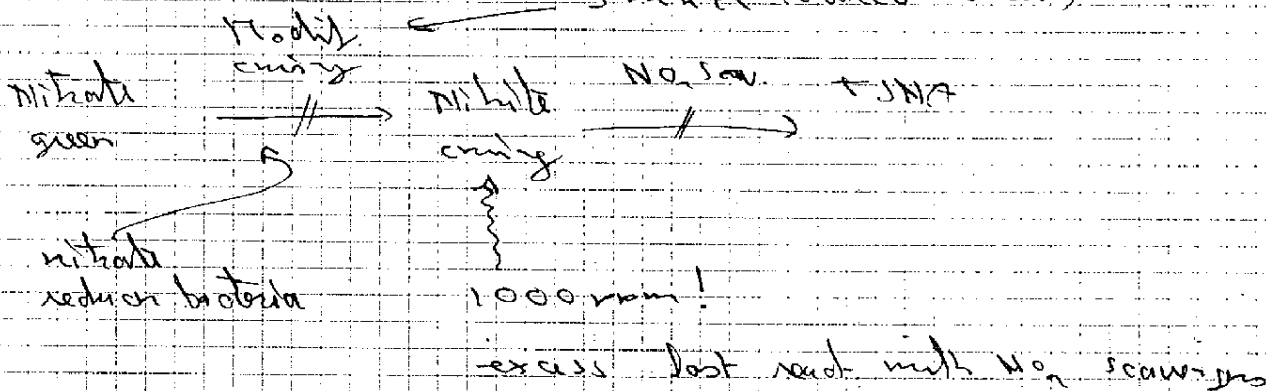 Modif.
curing
Nitrate
green
Nitrite
curing
NO2 scav.
TSNA
nitrate
reducn bacteria
1000 ppm!
excess last react with NO2 scavengers